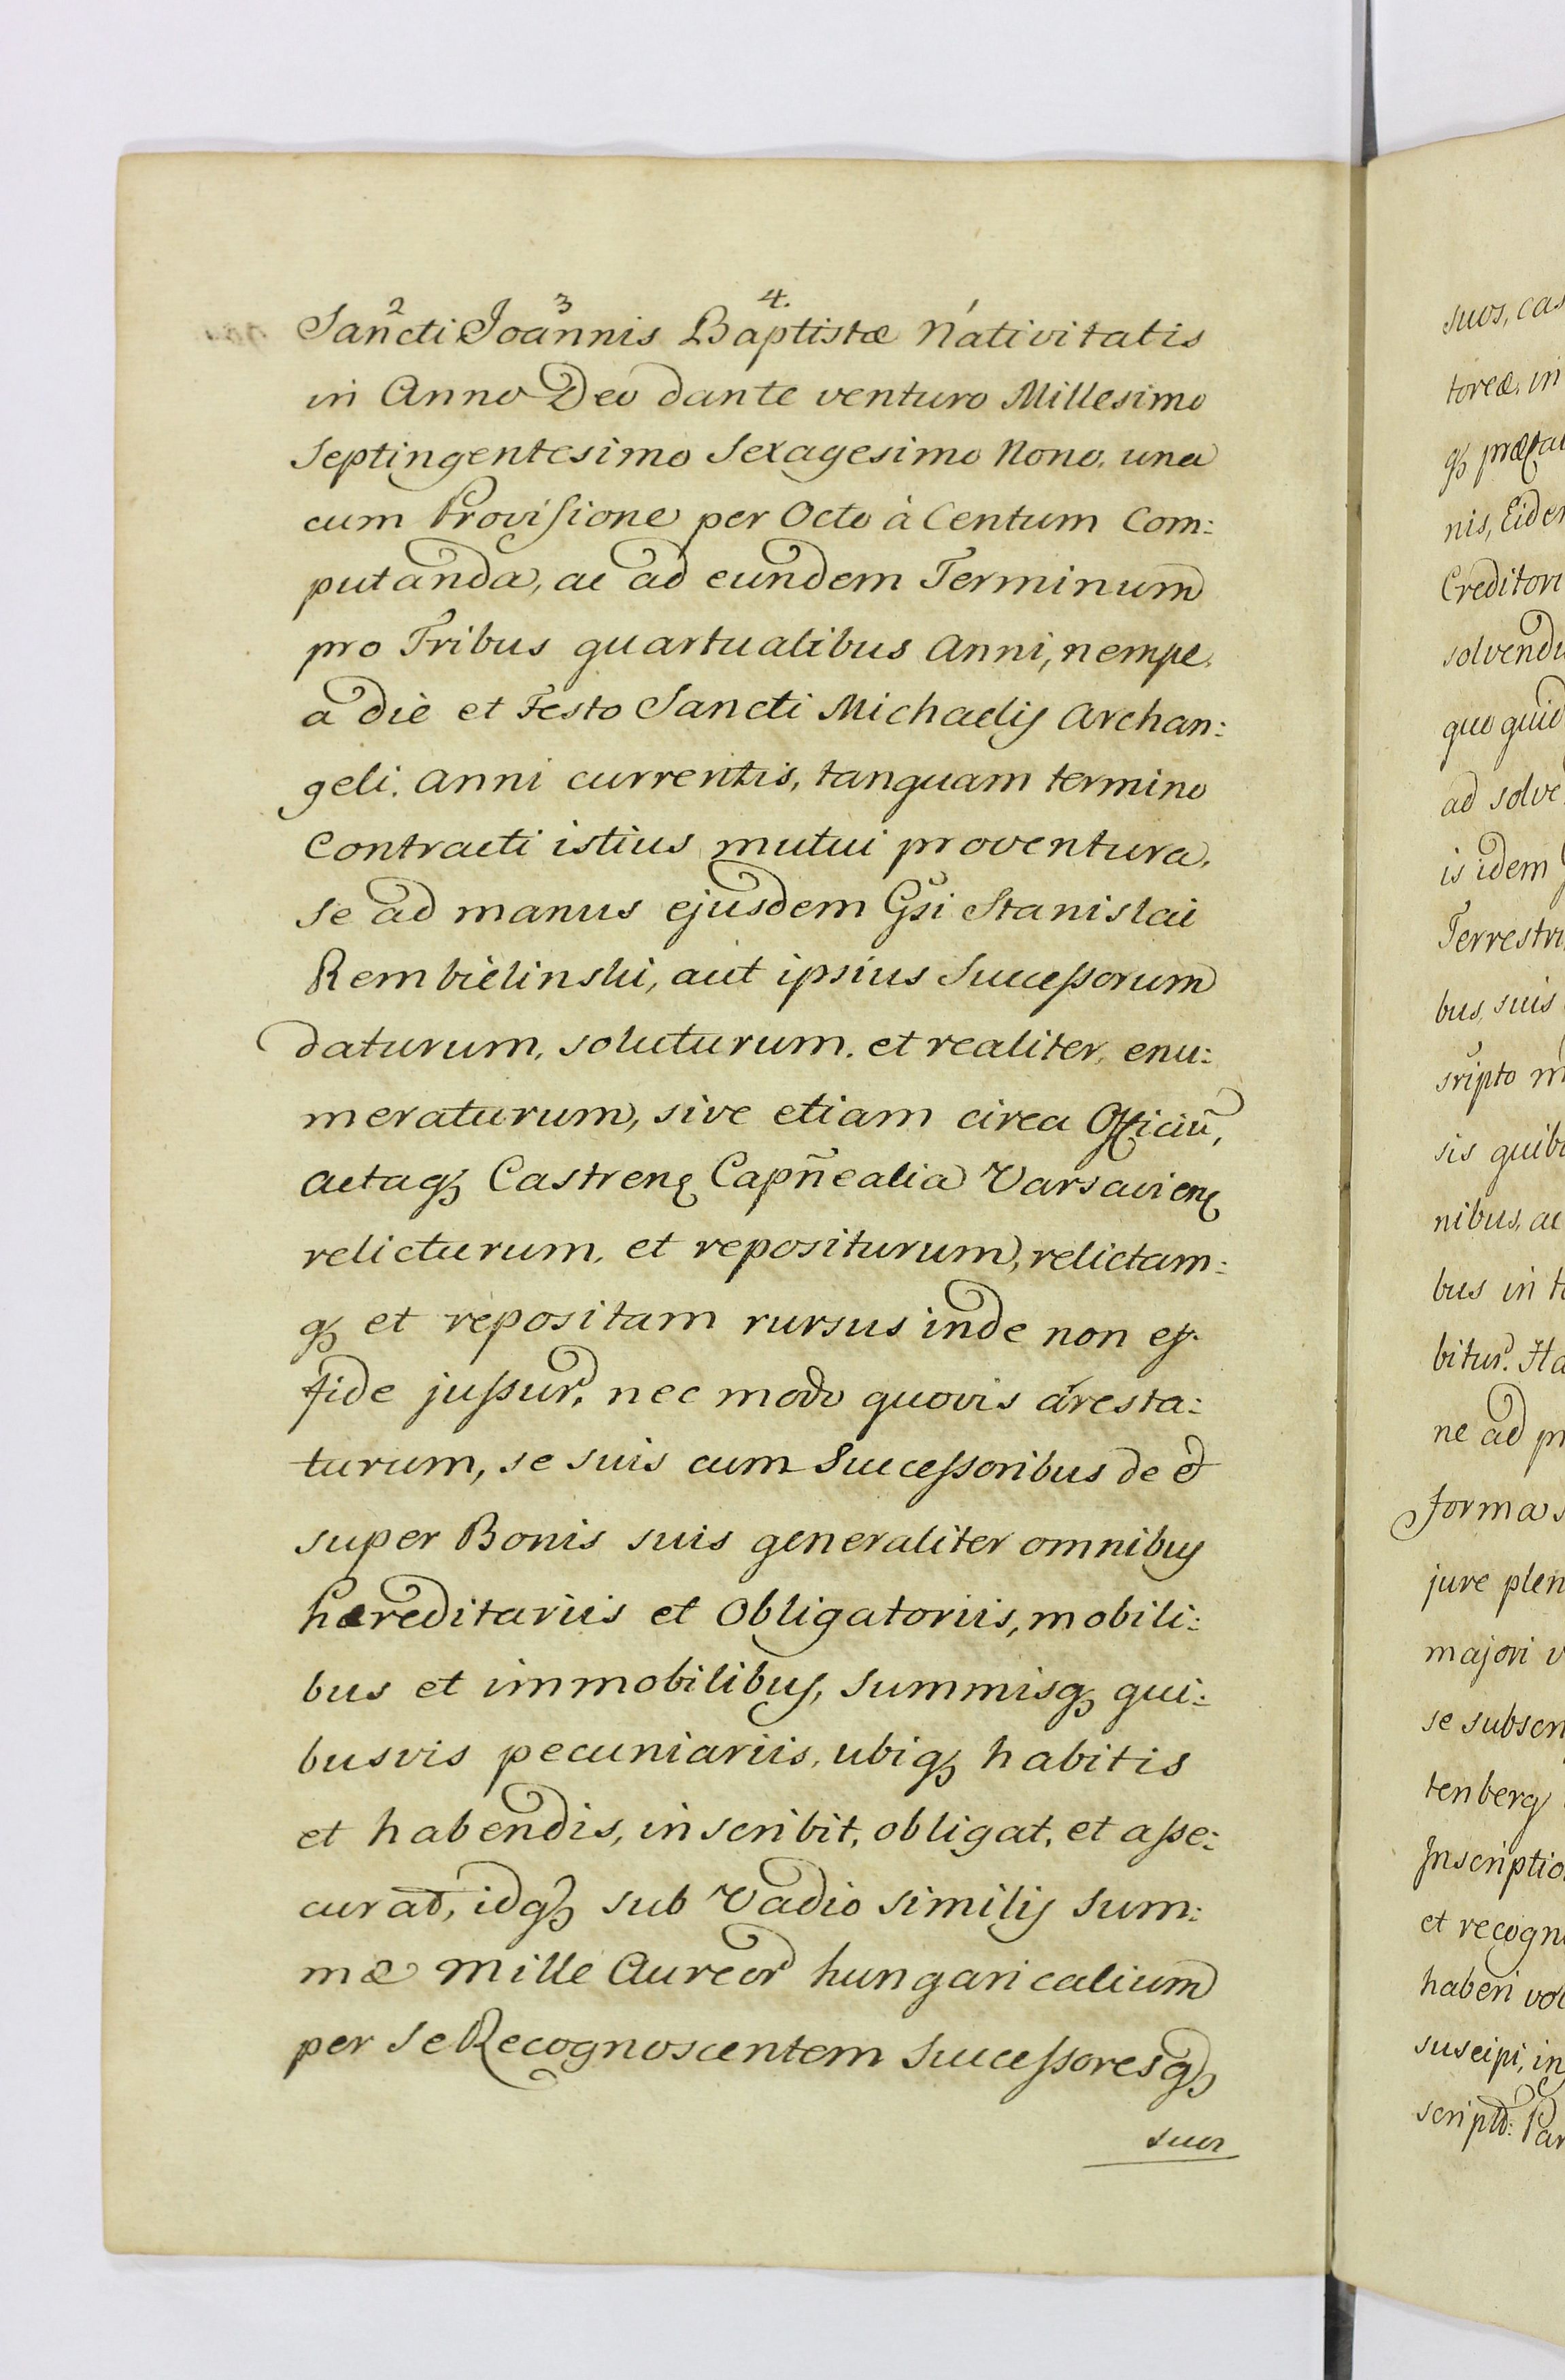 Sancti Joannis Baptistæ Nativitatis
in Anno Deo dante venturo Millesimo
Septingentesimo Sexagesimo Nono, una
cum Provisione per Octo à Centum Com:
putanda, ac ad eundem Terminum
pro Tribus quartualibus Anni, nempe
a die et Festo Sancti Michaelis Archan:
geli, anni currentis, tanquam termino
Contracti istius mutui proventura,
se ad manus ejusdem Gsi Stanislai
Rembielinski, aut ipsius Successorum
daturum, soluturum, et realiter, enu:
meraturum, sive etiam circa Officiũ,
actaqꝫ Castrenę Capñealia Varsavienę
relicturum, et repositurum, relictam:
qꝫ et repositam rursus inde non es
fide jussur, nec modo quovis aresta:
turum, se suis cum Successoribus de et
super Bonis suis generaliter omnibus
hæreditariis et Obligatoriis, mobili:
bus et immobilibus, Summisqꝫ qui:
busvis pecuniariis, ubiqꝫ habitis
et habendis, inscribit, obligat, et asse:
curat, idqꝫ sub Vadio similis Sum:
mæ Mille Aureor hungaricalium
per se Recognoscentem Successoresqꝫ
suos
suos, cas
toreæ, in
qꝫ præfa
nis, Eide
Creditori
solvendu
quo quid
ad solve
is idem
Terrestri
bus, suis
sripto m
sis quib
nibus, ac
bus in t
bitur. Ha
ne ad p
forma s
jure plen
majori v
se subscri
tenberg
Inscriptio
et recogn
haberi vol
suscipi, in
script: Par